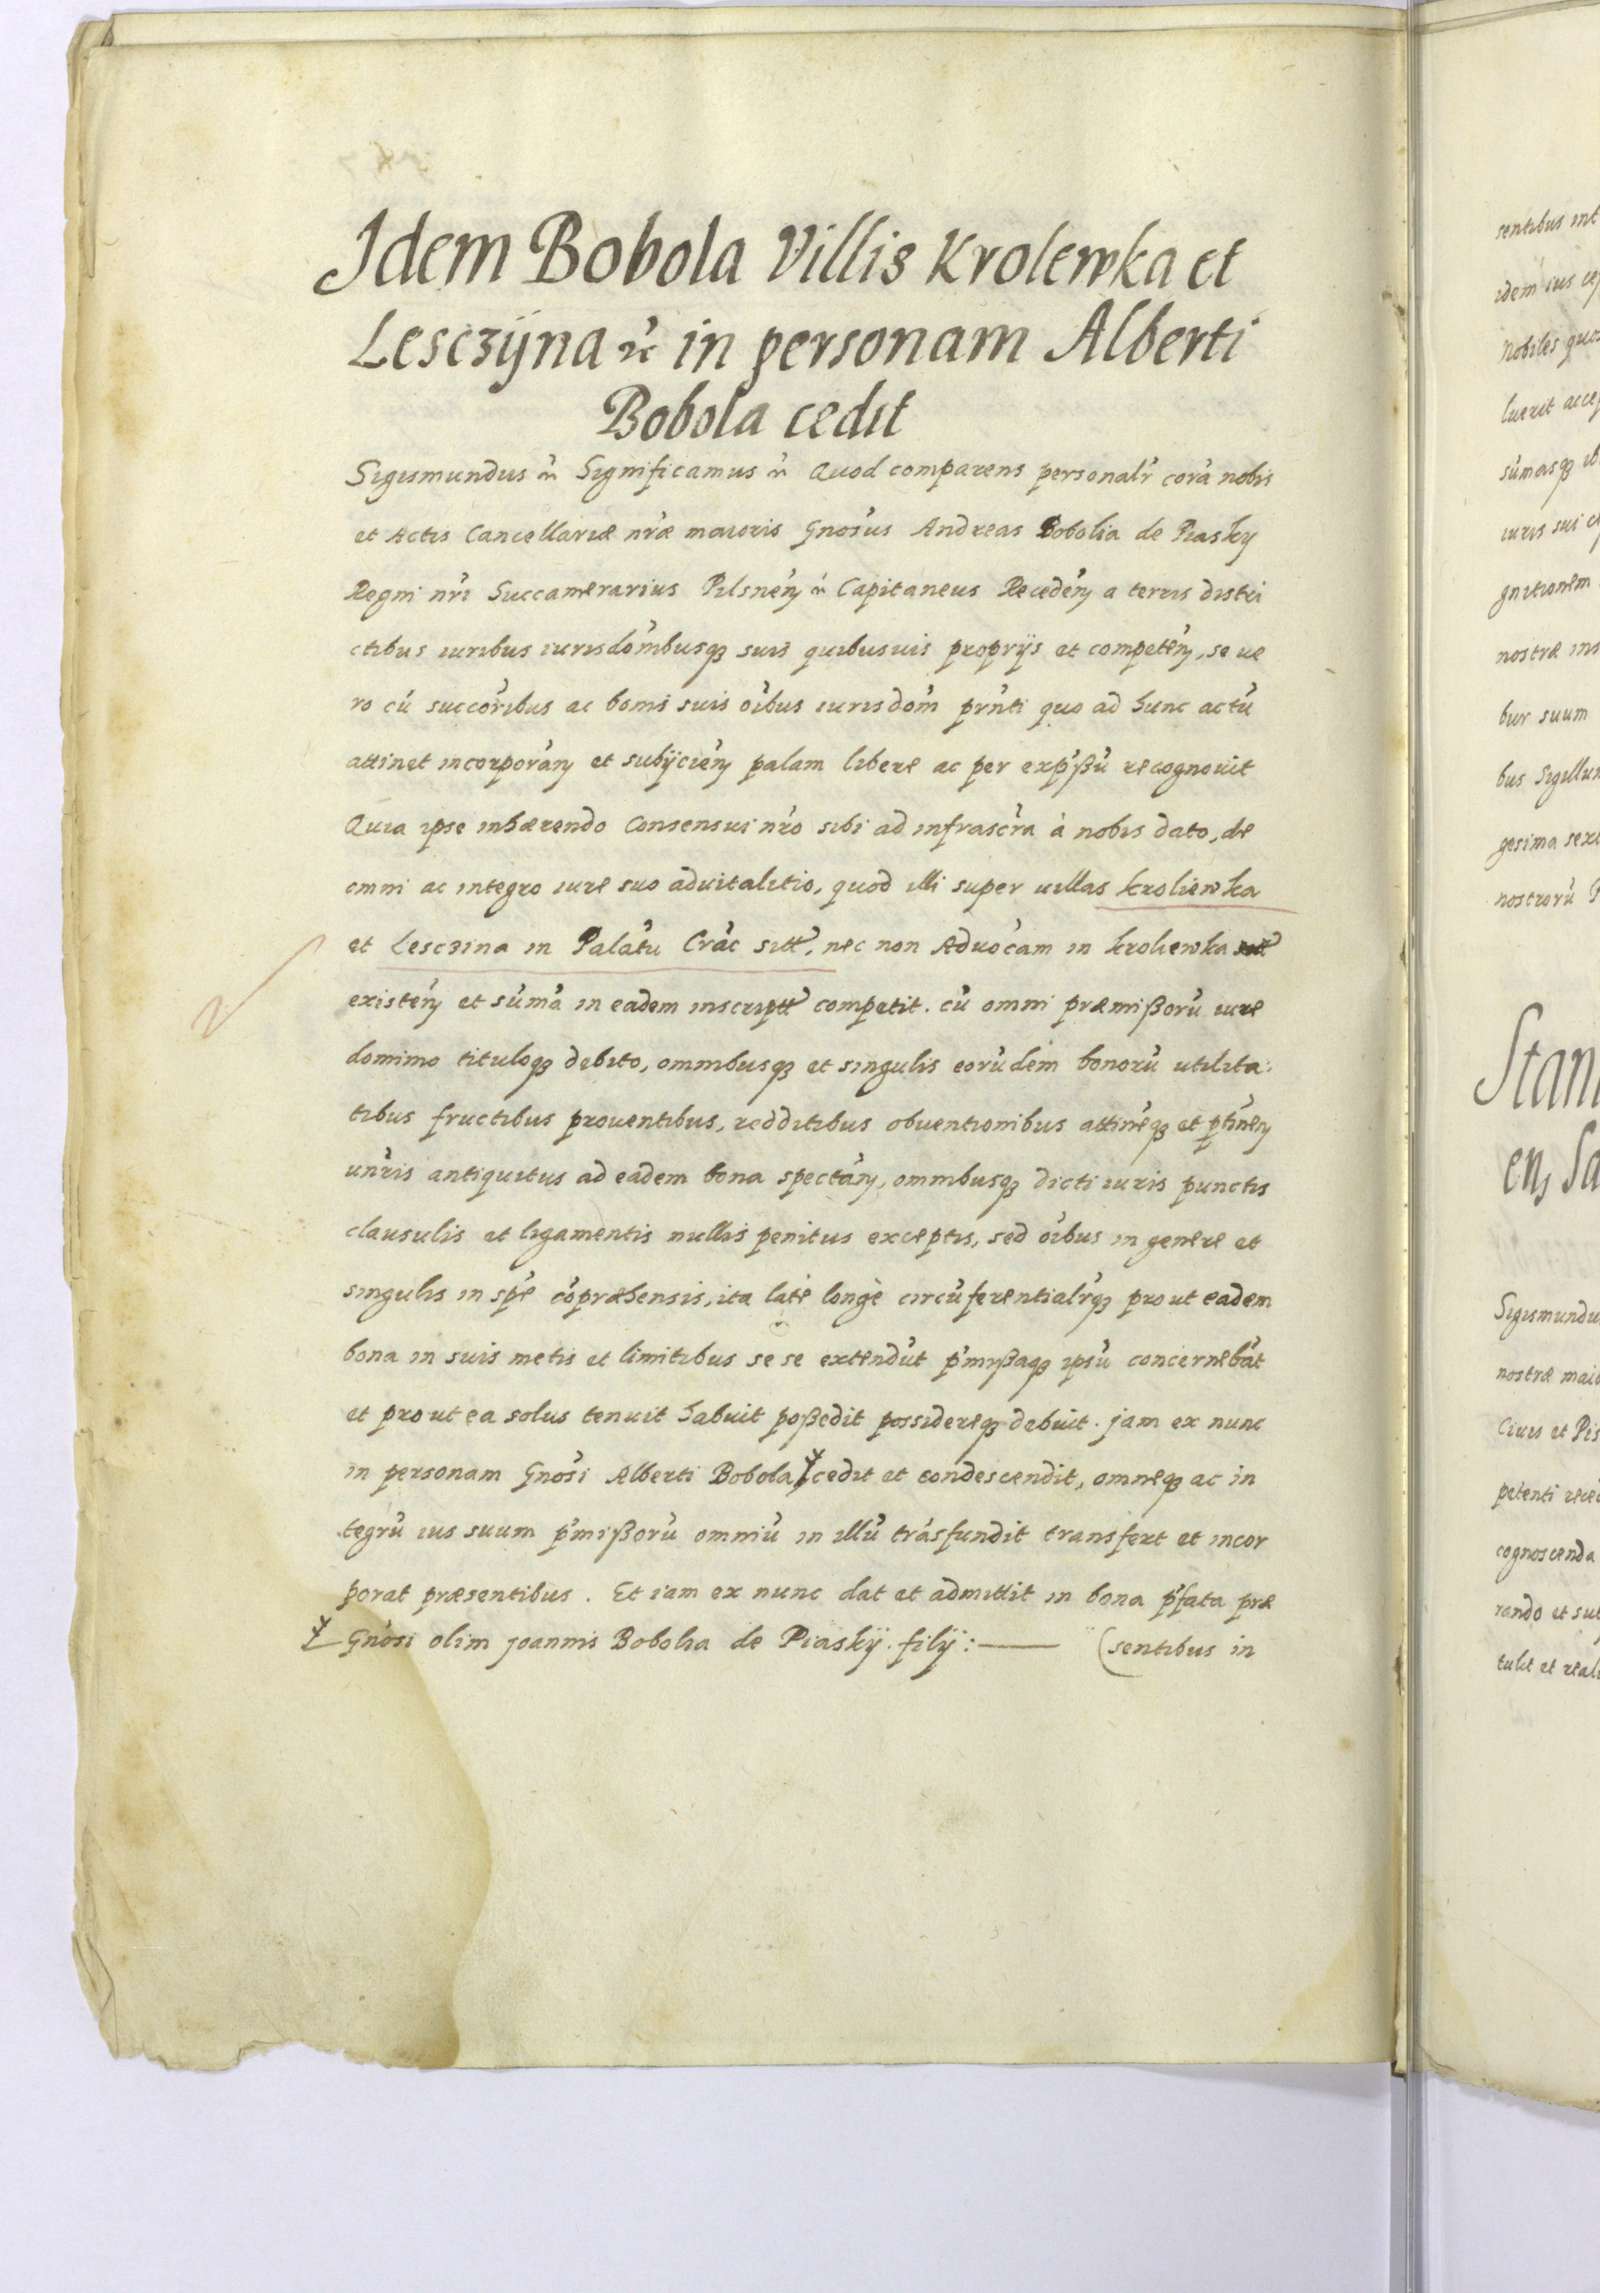 Idem Bobola Villis Krolewka et
Lesczÿna ꝛc in personam Alberti
Bobola cedit
Sigismundus ꝛc Significamus ꝛc Quod comparens personalr̃ corã nobis
et Actis Cancellariæ nr̃æ maioris Gnosus Andreas Bobolia de Piasky
Regni nr̃i Succamerarius Pilsneñ ꝛc Capitaneus Recedeñ a terris distri
ctibus iuribus iurisdom̃ibusqꝫ suis quibusuis proprijs et competeñ, se ve
ro cũ succor̃ibus ac bonis suis oĩbus iurisdom̃ prñti quo ad hunc actũ
attinet incorporañ et subÿcieñ palam libere ac per exp̃ßũ recognovit
Quia ipse inhærendo Consensui nr̃o sibi ad infrascr̃a à nobis dato, de
omni ac integro iure suo advitalitio, quod illi super villas Kroliewka
et Lesczina in Palat̃u Crac̃ sitt̃, nec non Advoc̃am in Kroliewka
existeñ et sum̃ã in eadem inscriptt̃ competit. cũ omni præmißorũ iure
dominio tituloqꝫ debito, omnibusqꝫ et singulis eorũdem bonorũ utilita:
tibus fructibus proventibus, redditibus obventionibus attineñqꝫ et p̃tineñ
unr̃is antiquitus ad eadem bona spectañ, omnibusqꝫ dicti iuris punctis
clausulis et ligamentis nullis penitus exceptis, sed oĩbus in genere et
singulis in sp̃e cõpræhensis, ita latè longè circũferentialr̃qꝫ prout eadem
bona in suis metis et limitibus se se extendũt p̃mißaqꝫ ipsũ concernebãt
et prout ea solus tenuit habuit poßedit possidereqꝫ debuit. jam ex nunc
in personam Gnosi Alberti Bobola cedit et condescendit, omneqꝫ ac in
tegrũ ius suum p̃mißorũ omniũ in illũ trãsfundit transfert et incor
porat præsentibus. Et iam ex nunc dat et admittit in bona p̃fata præ
Gnosi olim Joannis Bobolia de Piaskÿ. filÿ: (sentibus in
sentibus int
idem sus
Nobiles
luerit
iuris sui
gnitionem
nostræ
bur suum
bus Sigillu
gesima sex
nostrorũ
Stani
Sigismundu
nostræ
Civis et
petenti
cognoscenda
rando et sub
tulit et reali